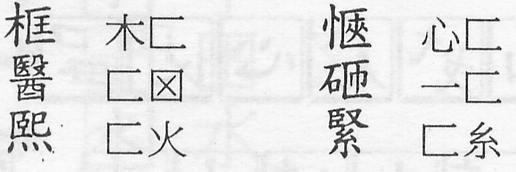 框 木匚 愜 心匚
醫 匚⊠ 砸 一匚
熙 匚火 緊 匚糸